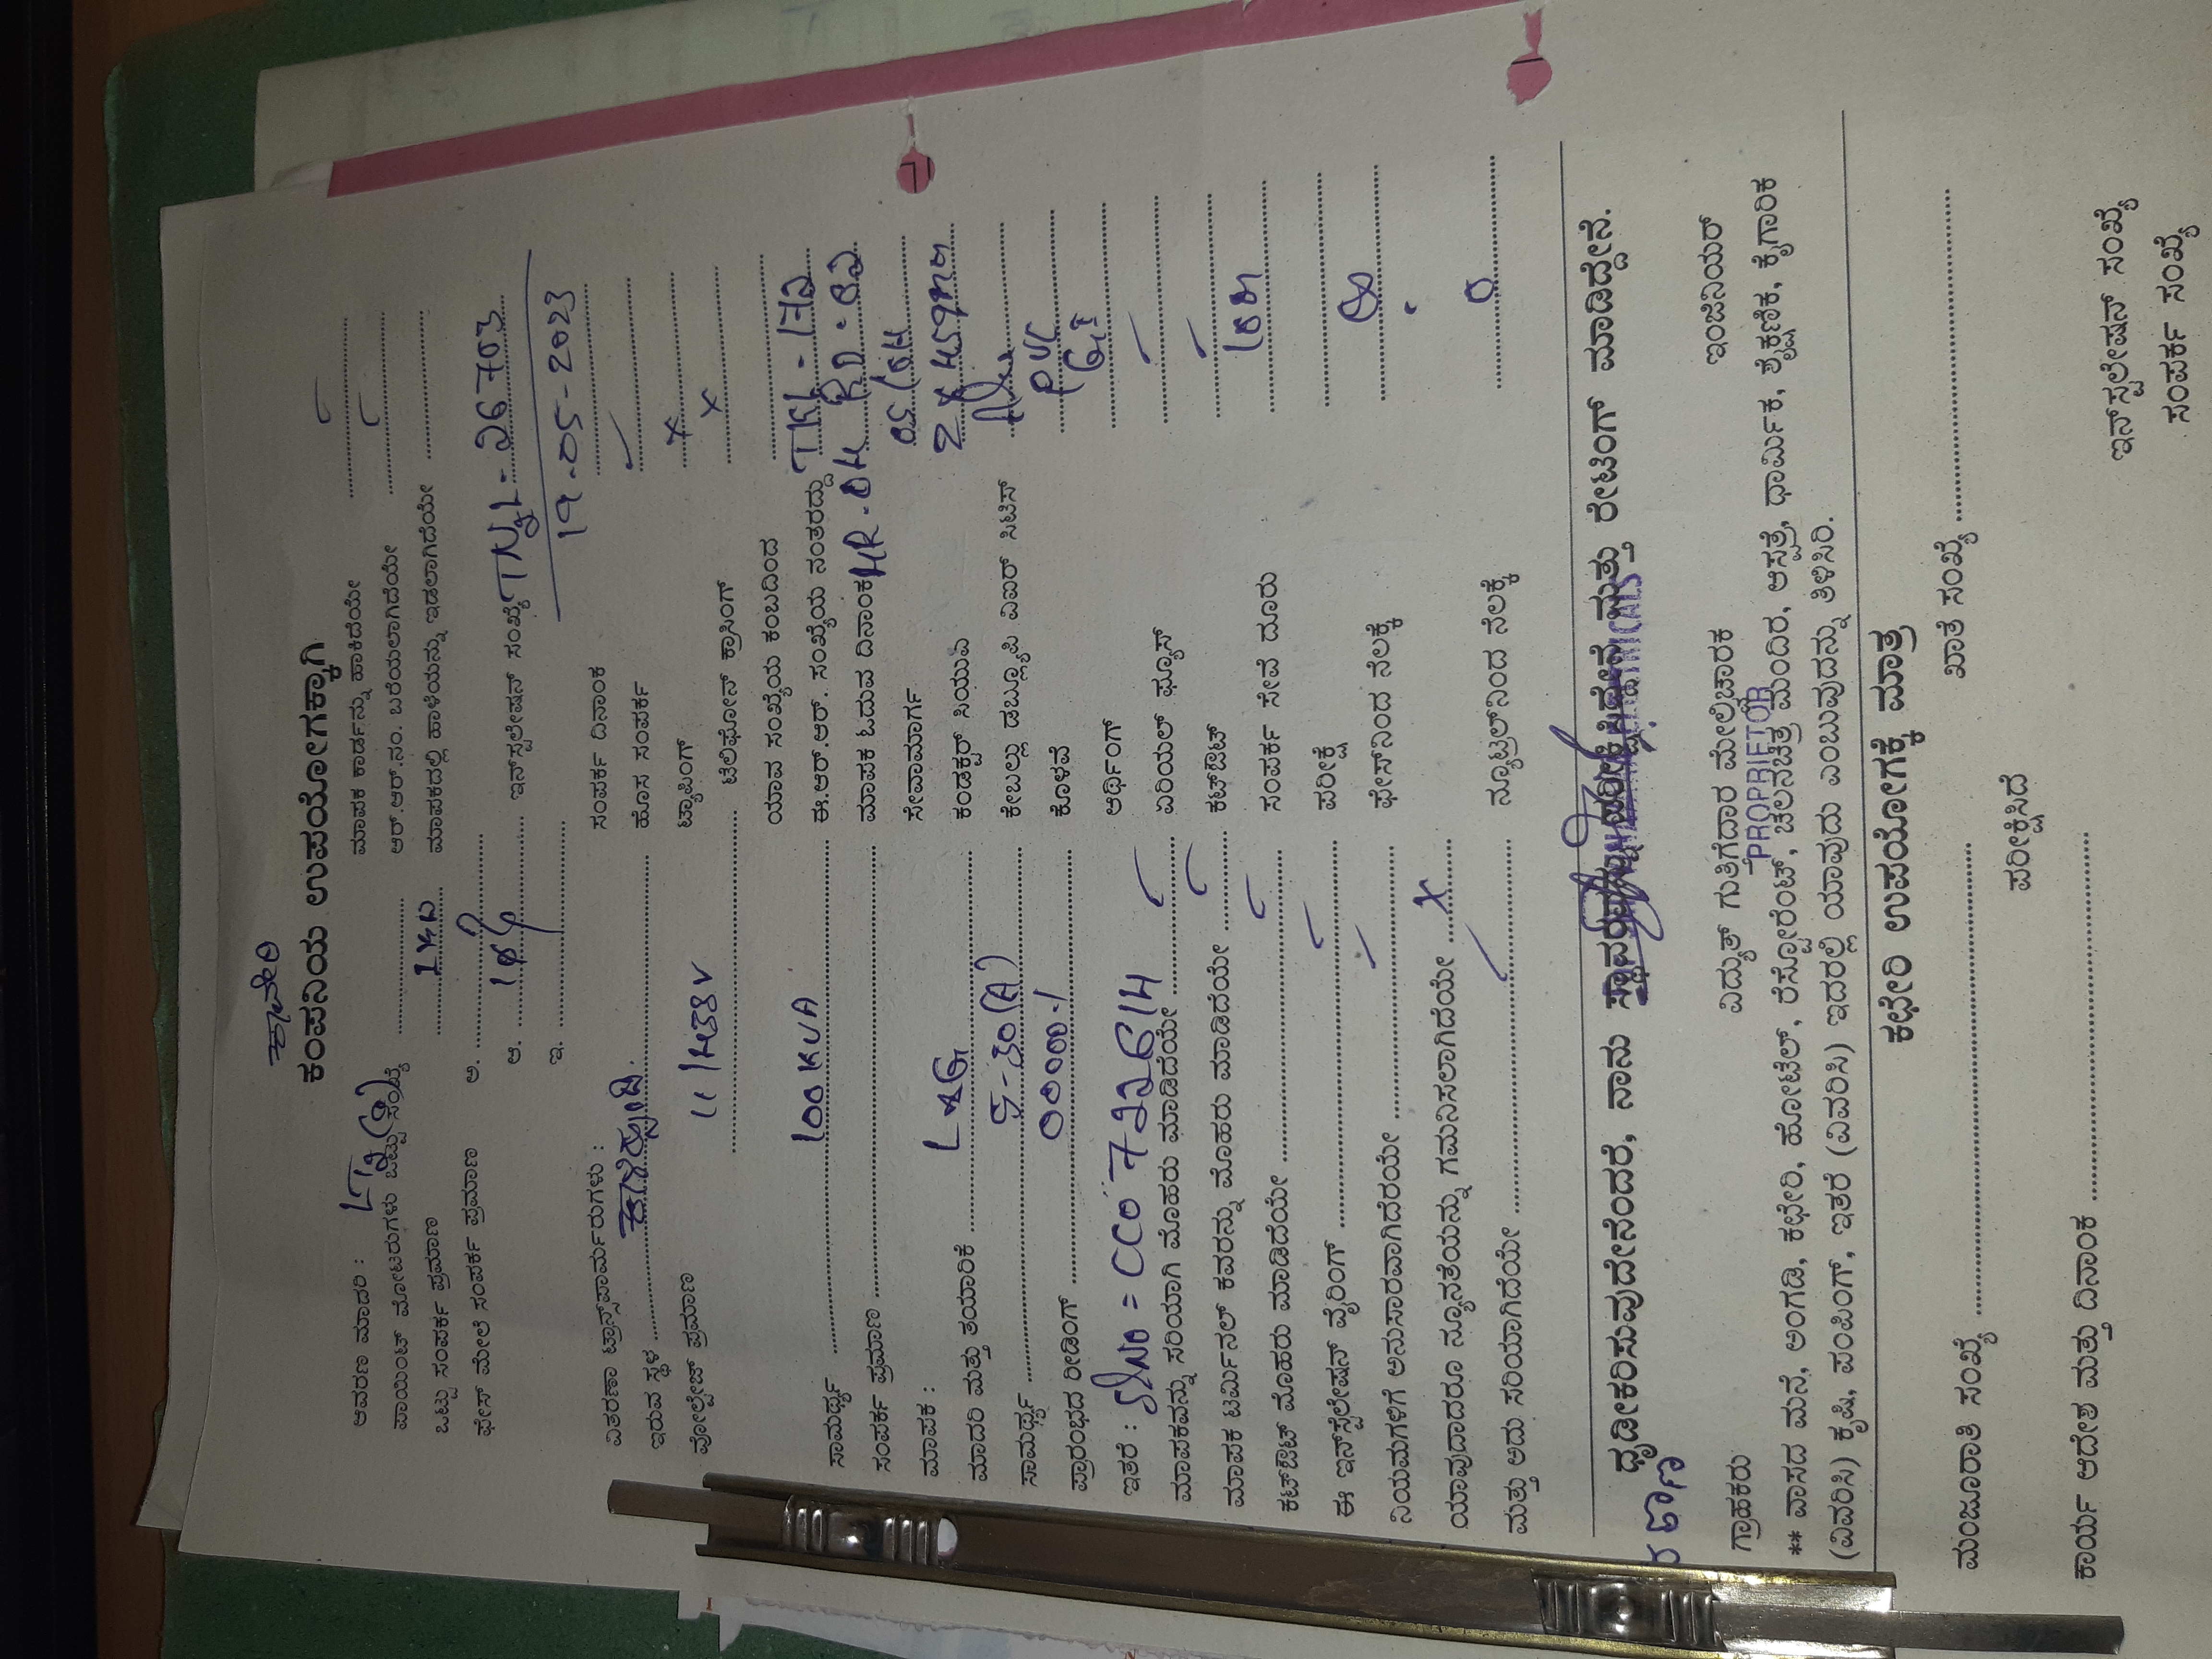 ಕಂಪನಿಯ ಉಪಯೋಗಕ್ಕಾಗಿ
ಆವರಣ ಮಾದರಿ : ಮಾಪಕ ಕಾರ್ಡನ್ನು ಹಾಕಿದೆಯೇ
ಪಾಯಿಂಟ್ ಮೋಟರುಗಳು ಒಟ್ಟು ಸಂಖ್ಯೆ ಆರ್.ಆರ್.ನಂ. ಬರೆಯಲಾಗಿದೆಯೇ
ಒಟ್ಟು ಸಂಪರ್ಕ ಪ್ರಮಾಣ ಮಾಪಕದಲ್ಲಿ ಹಾಳೆಯನ್ನು ಇಡಲಾಗಿದೆಯೇ
ಫೇಸ್ ಮೇಲೆ ಸಂಪರ್ಕ ಪ್ರಮಾಣ ಅ.
ಆ. 1ph ಇನ್‌ಸ್ಟಲೇಷನ್ ಸಂಖ್ಯೆ TNL-26703
ಇ. 19-05-2023
ವಿತರಣಾ ಟ್ರಾನ್ಸ್‌ಫಾರ್ಮರುಗಳು : ಸಂಪರ್ಕ ದಿನಾಂಕ
ಇರುವ ಸ್ಥಳ ಹೊಸ ಸಂಪರ್ಕ
ವೋಲ್ಟೇಜ್ ಪ್ರಮಾಣ 11/433V ಟ್ಯಾಪಿಂಗ್ x
ಟೆಲಿಫೋನ್ ಕ್ರಾಸಿಂಗ್ x
ಯಾವ ಸಂಖ್ಯೆಯ ಕಂಬದಿಂದ
ಸಾಮರ್ಥ್ಯ 100KVA ಈ.ಆರ್.ಆರ್. ಸಂಖ್ಯೆಯ ನಂತರದ್ದು
ಸಂಪರ್ಕ ಪ್ರಮಾಣ ಮಾಪಕ ಓದುವ ದಿನಾಂಕ MR-04
ಮಾಪಕ : ಸೇವಾಮಾರ್ಗ
ಮಾದರಿ ಮತ್ತು ತಯಾರಿಕೆ L&G ಕಂಡಕ್ಟರ್ ಸಿಯುಎ
ಸಾಮರ್ಥ್ಯ 5-30(A) ಕೇಬಲ್ಲು ಡಬ್ಲ್ಯೂಪಿ ವಿಐಆರ್ ಸಿಟಿಸ್
ಪ್ರಾರಂಭದ ರೀಡಿಂಗ್ ಕೊಳವೆ PVC
ಇತರೆ : SlNo = CC0722614 ಆರ್ಥಿಂಗ್ GI
ಮಾಪಕವನ್ನು ಸರಿಯಾಗಿ ಮೊಹರು ಮಾಡಿದೆಯೇ ಏರಿಯಲ್ ಫ್ಯೂಸ್
ಮಾಪಕ ಟರ್ಮಿನಲ್ ಕವರನ್ನು ಮೊಹರು ಮಾಡಿದೆಯೇ ಕಟ್‌ಔಟ್
ಕಟ್‌ಔಟ್ ಮೊಹರು ಮಾಡಿದೆಯೇ ಸಂಪರ್ಕ ಸೇವೆ ದೂರು
ಈ ಇನ್‌ಸ್ಟಲೇಷನ್ ವೈರಿಂಗ್ ಪರೀಕ್ಷೆ
ನಿಯಮಗಳಿಗೆ ಅನುಸಾರವಾಗಿದೆರಯೇ ಫೇಸ್‌ನಿಂದ ನೆಲಕ್ಕೆ
ಯಾವುದಾದರೂ ನ್ಯೂನತೆಯನ್ನು ಗಮನಿಸಲಾಗಿದೆಯೇ x
ಮತ್ತು ಅದು ಸರಿಯಾಗಿದೆಯೇ ನ್ಯೂಟ್ರಲ್‌ನಿಂದ ನೆಲಕ್ಕೆ 0
ದೃಡೀಕರಿಸುವುದೇನೆಂದರೆ, ನಾನು ಸ್ಥಾವರವನ್ನು ಪರೀಕ್ಷಿಸಿದ್ದೇನೆ ಮತ್ತು ರೇಟಿಂಗ್ ಮಾಡಿದ್ದೇನೆ.
ಗ್ರಾಹಕರು ವಿದ್ಯುತ್ ಗುತ್ತಿಗೆದಾರ ಮೇಲ್ವಿಚಾರಕ ಇಂಜಿನಿಯರ್
PROPRIETOR
** ವಾಸದ ಮನೆ, ಅಂಗಡಿ, ಕಛೇರಿ, ಹೋಟೆಲ್, ರೆಸ್ಟೋರೆಂಟ್, ಚಲನಚಿತ್ರ ಮಂದಿರ, ಆಸ್ಪತ್ರೆ, ಧಾರ್ಮಿಕ, ಶೈಕ್ಷಣಿಕ, ಕೈಗಾರಿಕ
(ವಿವರಿಸಿ) ಕೃಷಿ, ಪಂಪಿಂಗ್, ಇತರೆ (ವಿವರಿಸಿ) ಇದರಲ್ಲಿ ಯಾವುದು ಎಂಬುವುದನ್ನು ತಿಳಿಸಿರಿ.
ಕಛೇರಿ ಉಪಯೋಗಕ್ಕೆ ಮಾತ್ರ
ಮಂಜೂರಾತಿ ಸಂಖ್ಯೆ ಖಾತೆ ಸಂಖ್ಯೆ
ಪರೀಕ್ಷಿಸಿದೆ
ಕಾರ್ಯ ಆದೇಶ ಮತ್ತು ದಿನಾಂಕ
ಇನ್‌ಸ್ಟಲೇಷನ್ ಸಂಖ್ಯೆ
ಸಂಪರ್ಕ ಸಂಖ್ಯೆ